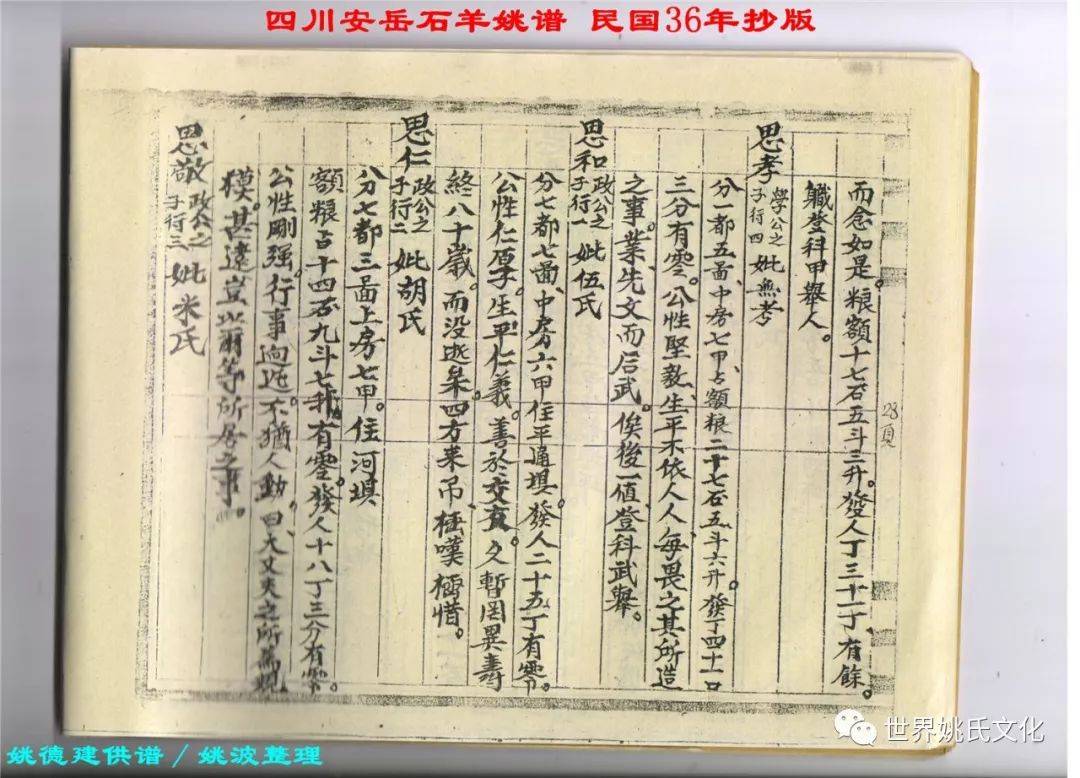 四川安岳石羊姚谱 民国36年抄版
而念如是。粮額十七石五斗三升。發人丁三十一丁、有餘。
職登科甲舉人。
思孝 學公之子行四 妣無考
分一都五啚、中房七甲、占額粮二十七石五斗六升。發丁四十一口
三分有零。公性堅毅、生平不依人人、每畏之其所造
之事。業、先文而后武。俟後一值、登科武舉。
思和 政公之子行一 妣伍氏
分七都七啚、中房六甲住平通垻。發人二十五丁有零。
公性仁厚。生平仁義。善於交友。久暫罔異壽
終八十歲。而没逝矣四方来吊、極嘆極惜。
思仁 政公之子行二 妣胡氏
分七都三啚上房七甲。住河垻
額粮占十四石九斗七升。有零。發人十八丁三分有零。
公性剛强。行事逈近。不猶人動、曰大丈夫之所為規
模。甚遠豈此爾等所居之事。
思敬 政公之子行三 妣米氏
28頁
世界姚氏文化
姚德建供谱/姚波整理